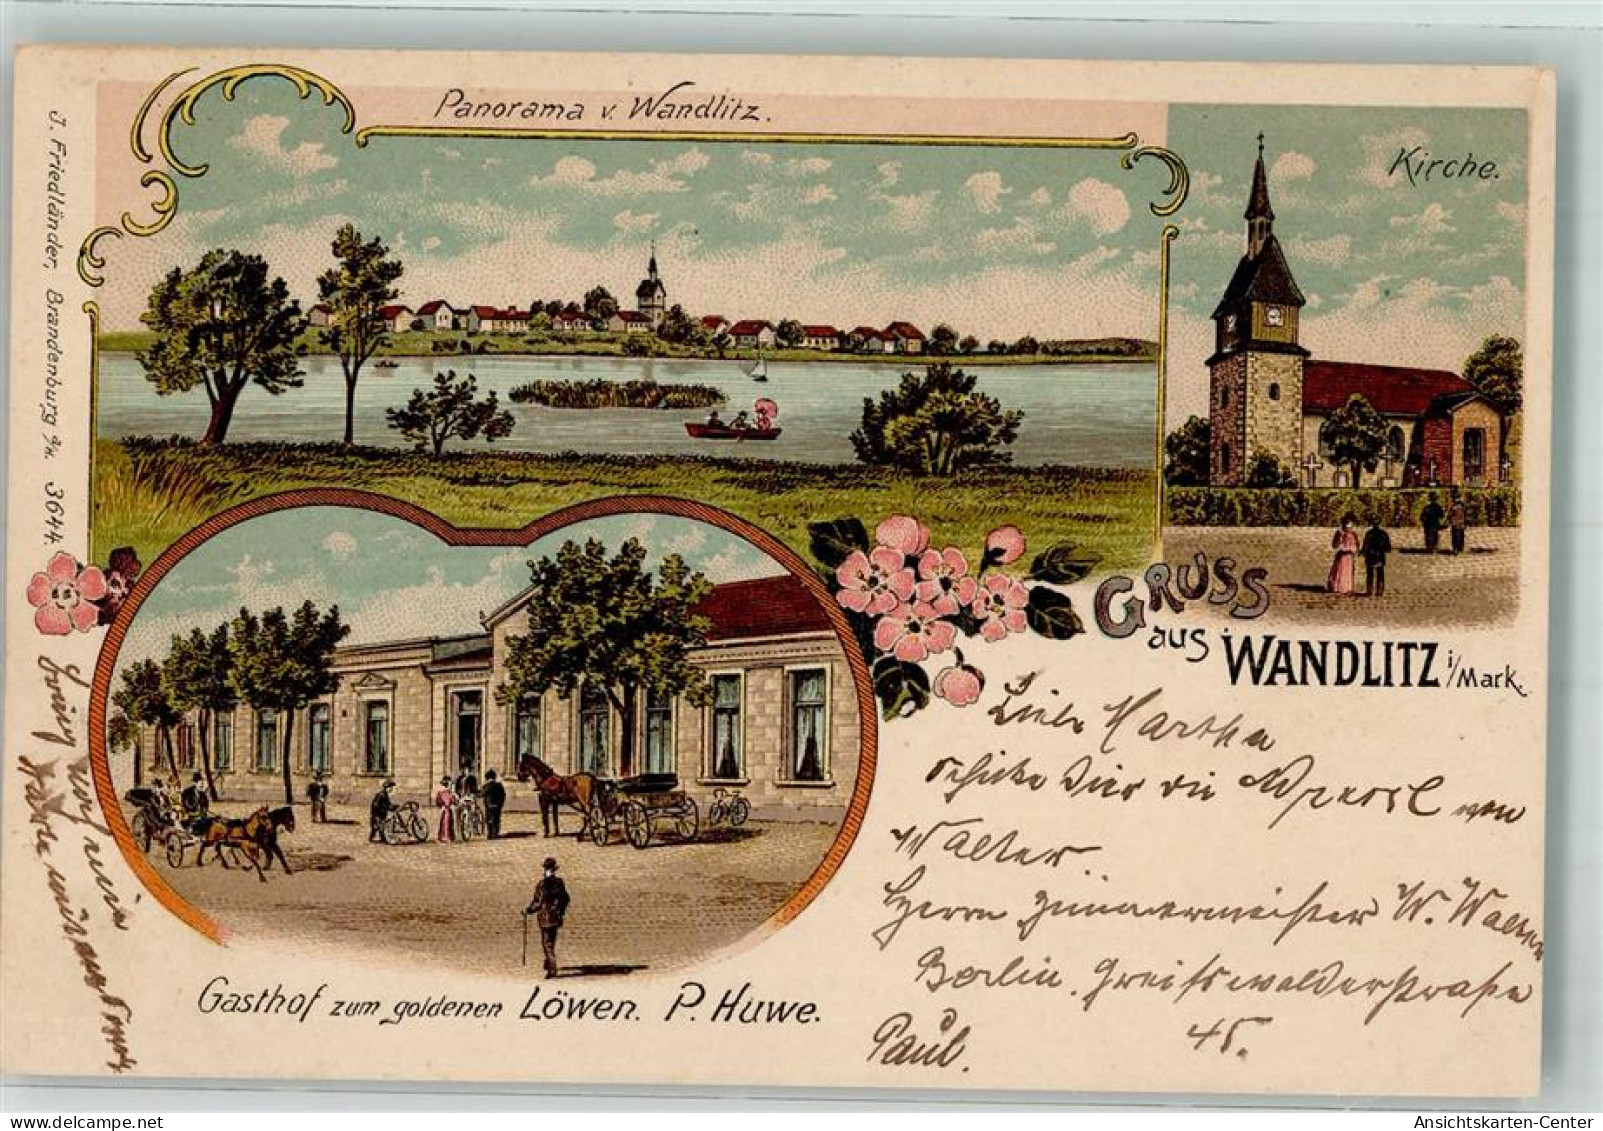 Panorama v. Wandlitz.
Kirche.
J. Friedländer, Brandenburg a/H. 3644.
GRUSS
aus WANDLITZ i/Mark.
Liebe Martha
schicke dir die Adresse von
Walter.
Herrn Zimmermeister W. Walter
Berlin. Greifswalderstraße
45.
Paul.
Gasthof zum goldenen Löwen. P. Huwe.
Ansichtskarten-Center